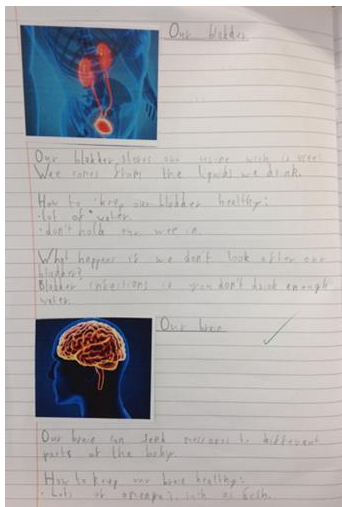 Our bladder
Our bladder stores our urine wich is wee.
Wee comes from the liquids we drink.
How to keep our bladder healthy:
· Lot of water
· don't hold our wee in.
What happens if we don't look after our
bladder?
Bladder infections if you don't drink enough
water.
Our brain
Our brain can send messages to different
parts of the body.
How to keep our brain healthy:
· Lots of omega 3, such as fish.